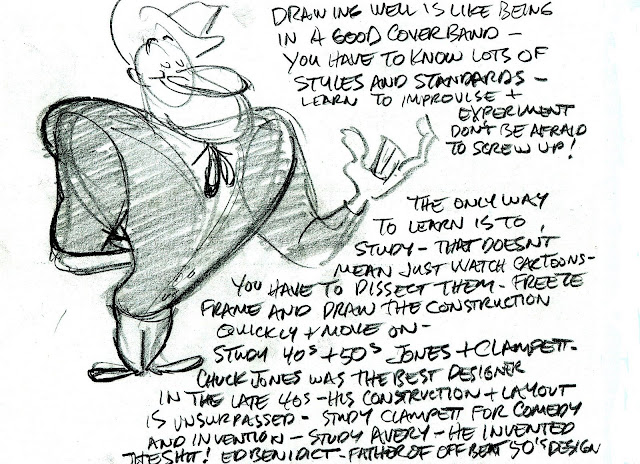 DRAWING WELL IS LIKE BEING
IN A GOOD COVERBAND -
YOU HAVE TO KNOW LOTS OF
STYLES AND STANDARDS -
LEARN TO IMPROVISE +
EXPERIMENT
DON'T BE AFRAID
TO SCREW UP!
THE ONLY WAY
TO LEARN IS TO
STUDY - THAT DOESN'T
MEAN JUST WATCH CARTOONS -
YOU HAVE TO DISSECT THEM - FREEZE
FRAME AND DRAW THE CONSTRUCTION
QUICKLY + MOVE ON -
STUDY 40s + 50s JONES + CLAMPETT -
CHUCK JONES WAS THE BEST DESIGNER
IN THE LATE 40s - HIS CONSTRUCTION + LAYOUT
IS UNSURPASSED - STUDY CLAMPETT FOR COMEDY
AND INVENTION - STUDY AVERY - HE INVENTED
THE SHIT! ED BENIDICT - FATHER OF OFF BEAT 50's DESIGN